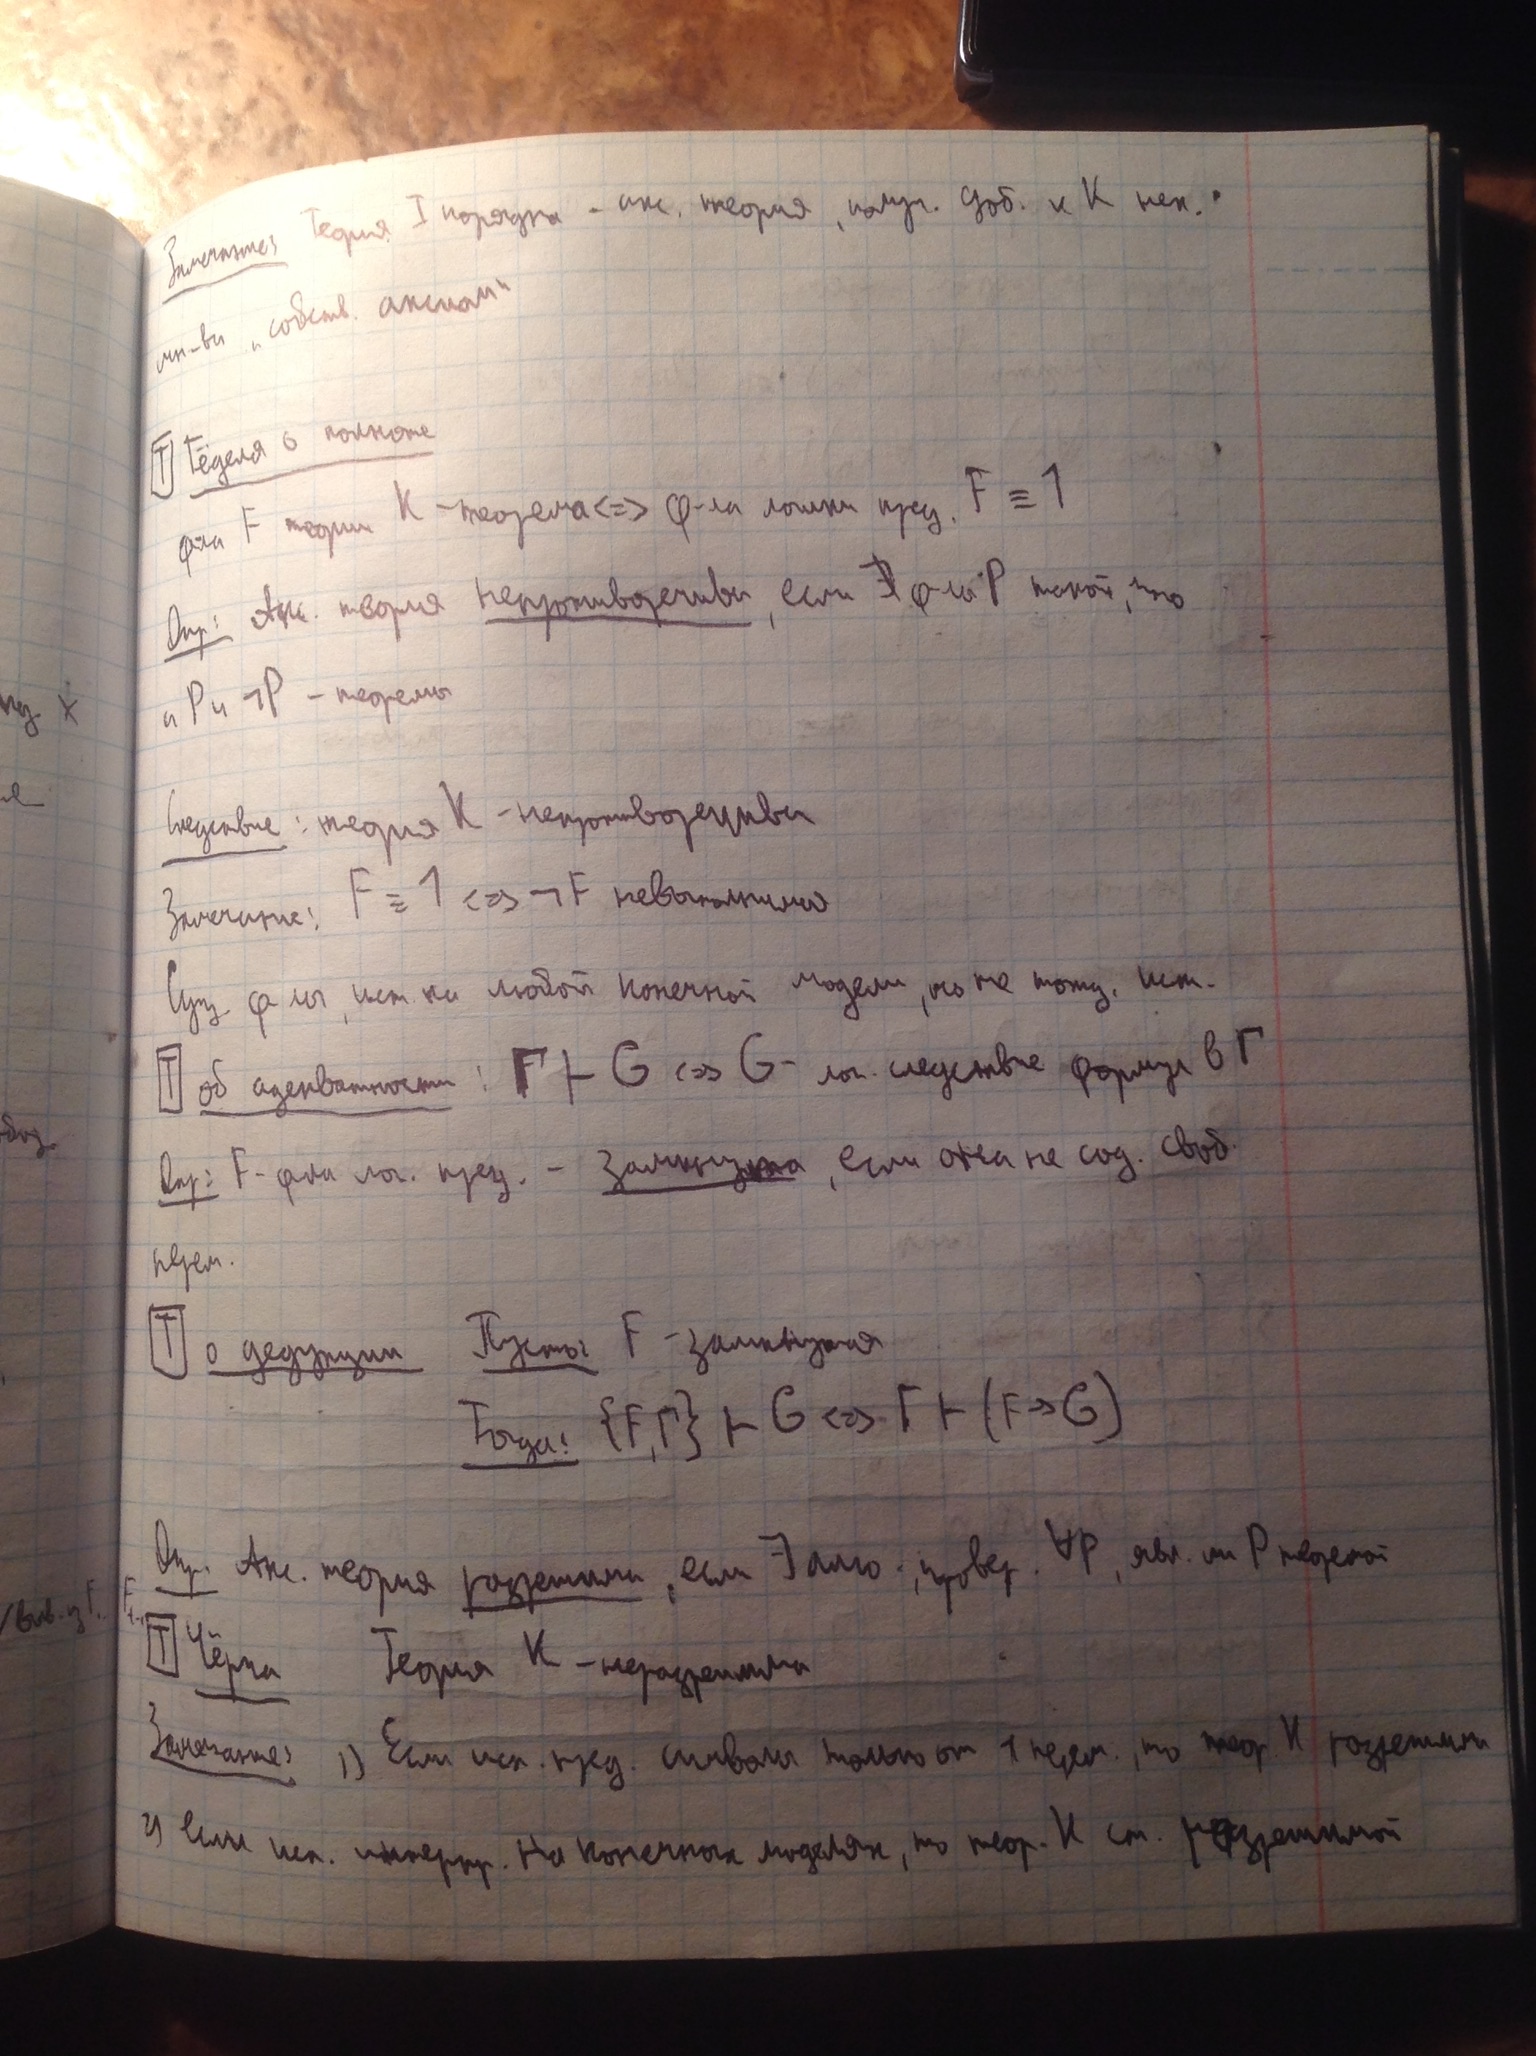 Замечание: Теория I порядка - акс. теория, получ. доб. к K нек.
мн-ва „собств. аксиом“
T Гёделя о полноте
ф-ла F теории K - теорема <=> ф-ла логики пред. F ≡ 1
Опр: Акс. теория непротиворечива, если ∄ ф-лы P такой, что
и P и ¬P - теоремы
Следствие: теория K - непротиворечива
Замечание: F ≡ 1 <=> ¬F невыполнима
Сущ. ф-лы, ист. на любой конечной модели, но не тожд. ист.
T об адекватности: Γ ⊢ G <=> G - лог. следствие формул в Γ
Опр: F - ф-ла лог. пред. - замкнута, если она не сод. своб.
перем.
T о дедукции Пусть: F - замкнутая
Тогда: {F, Γ} ⊢ G <=> Γ ⊢ (F → G)
Опр. Акс. теория разрешима, если ∃ алго., провер. ∀P, явл. ли P теоремой
T Чёрча Теория K - неразрешима
Замечание: 1) Если исп. пред. символы только от 1 перем., то теор. K разрешима
2) Если исп. интерпр. на конечных моделях, то теор. K ст. разрешимой